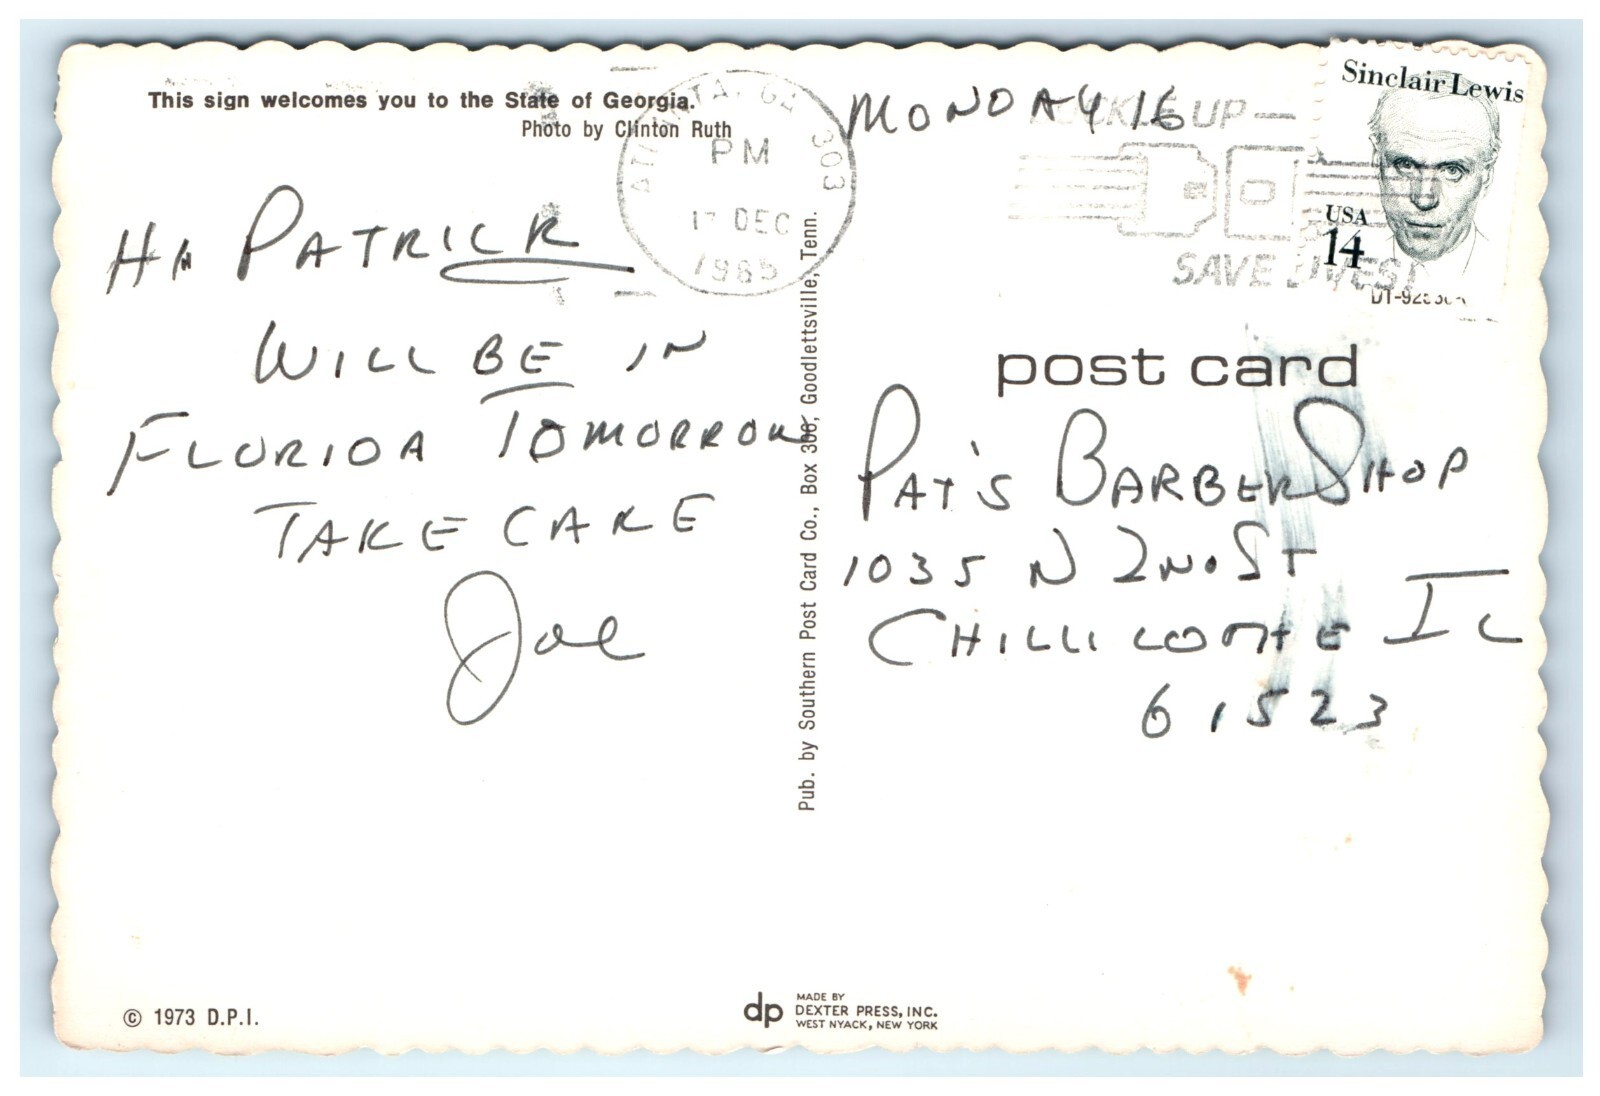 This sign welcomes you to the State of Georgia.
Photo by Clinton Ruth
ATLANTA, GA 303
PM
17 DEC
1985
MONDAY 16
UP
SAVE LIVES!
Sinclair Lewis
USA
14
HA PATRICK
WILL BE IN
FLORIDA TOMORROW
TAKE CARE
Joe
post card
PAT'S BARBER SHOP
1035 N 2ND. ST
CHILLICOTHE IL
61523
Pub. by Southern Post Card Co., Box 300, Goodlettsville, Tenn.
© 1973 D.P.I.
dp
MADE BY
DEXTER PRESS, INC.
WEST NYACK, NEW YORK